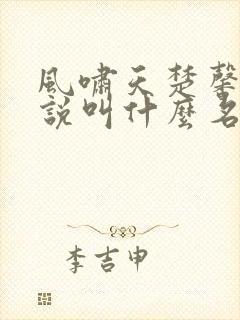 風嘯天楚馨
說叫什麼名
李吉申